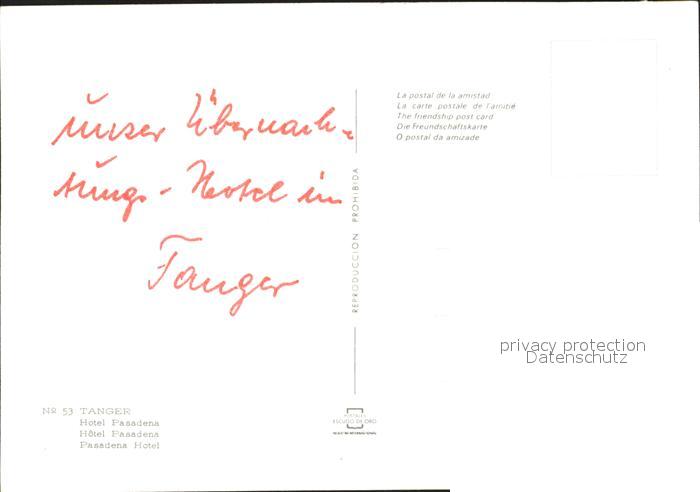 unser Übernach-
tungs-Hotel in
Tanger
La postal de la amistad
La carte postale de l'amitié
The friendship post card
Die Freundschaftskarte
O postal da amizade
REPRODUCCION PROHIBIDA
privacy protection
Datenschutz
Nº 53 TANGER
Hotel Pasadena
Hôtel Pasadena
Pasadena Hotel
POSTALES
ESCUDO DE ORO